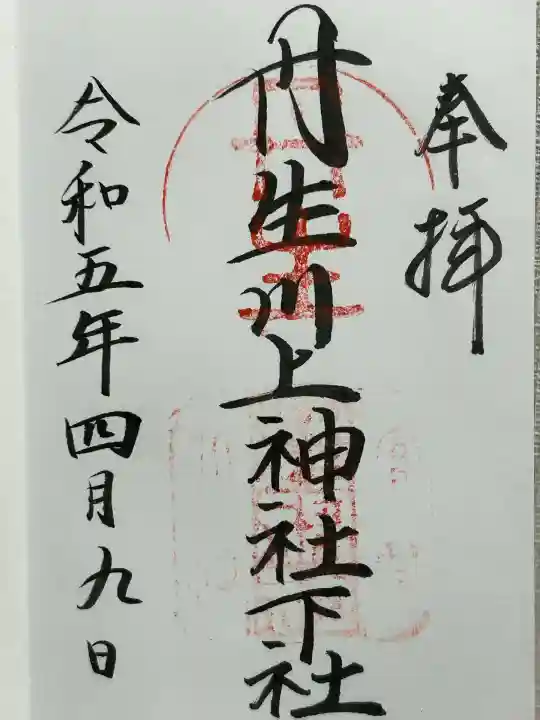 奉拝
丹生川上神社下社
令和五年四月九日